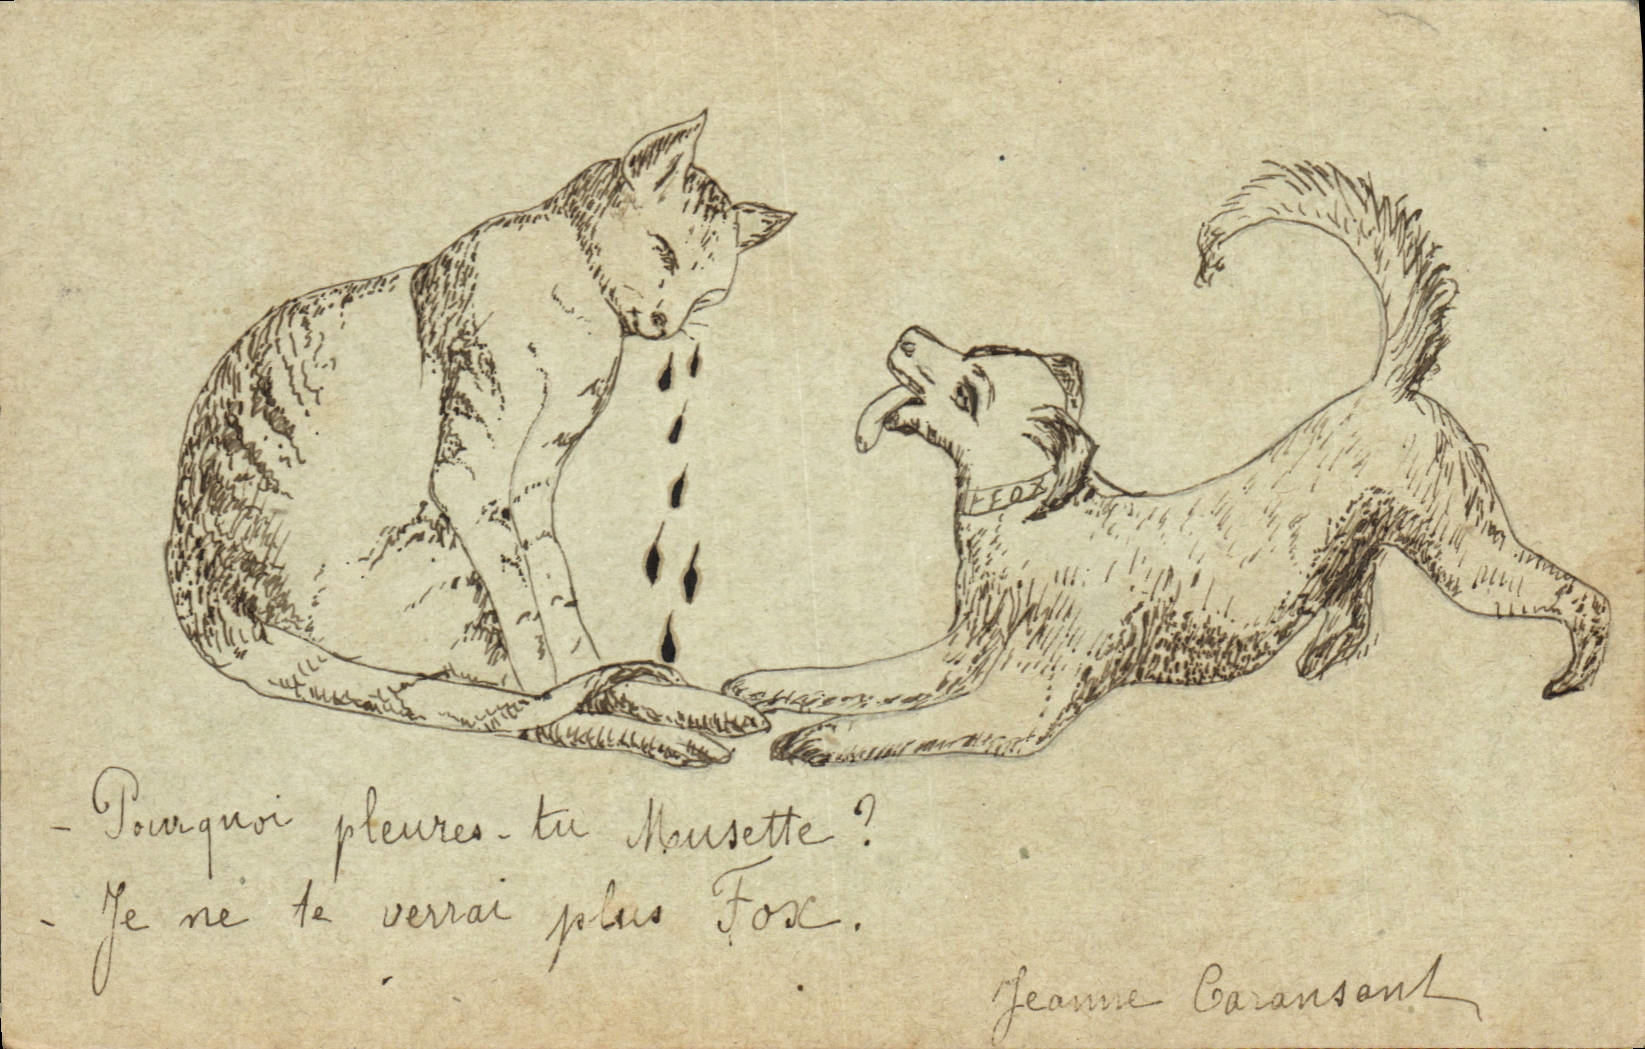 FOX
- Pourquoi pleures-tu Musette ?
- Je ne te verrai plus Fox.
Jeanne Caransant